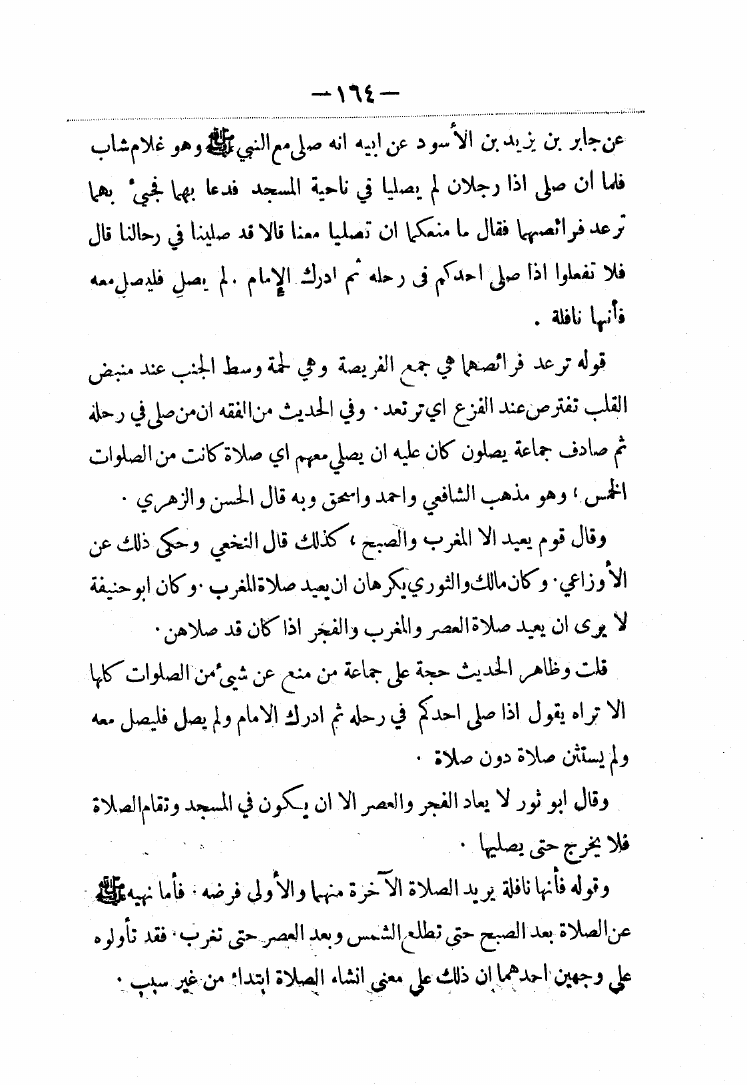 — ١٦٤ —
عن جابر بن يزيد بن الأسود عن ابيه انه صلى مع النبي ﷺ وهو غلام شاب
فلما ان صلى اذا رجلان لم يصليا في ناحية المسجد فدعا بهما فجيء بهما
ترعد فرائصهما فقال ما منعكما ان تصليا معنا قالا قد صلينا في رحالنا قال
فلا تفعلوا اذا صلى احدكم فى رحله ثم ادرك الإمام . لم يصل فليصل معه
فأنها نافلة .
قوله ترعد فرائصهما هي جمع الفريصة وهي لحمة وسط الجنب عند منبض
القلب تفترص عند الفزع اي ترتعد . وفي الحديث من الفقه ان من صلى في رحله
ثم صادف جماعة يصلون كان عليه ان يصلي معهم اي صلاة كانت من الصلوات
الخمس ، وهو مذهب الشافعي واحمد واسحق وبه قال الحسن والزهري .
وقال قوم يعيد الا المغرب والصبح ، كذلك قال النخعي وحكى ذلك عن
الأوزاعي . وكان مالك والثوري يكرهان ان يعيد صلاة المغرب . وكان ابو حنيفة
لا يرى ان يعيد صلاة العصر والمغرب والفجر اذا كان قد صلاهن .
قلت وظاهر الحديث حجة على جماعة من منع عن شيء من الصلوات كلها
الا تراه يقول اذا صلى احدكم في رحله ثم ادرك الامام ولم يصل فليصل معه
ولم يستثن صلاة دون صلاة .
وقال ابو ثور لا يعاد الفجر والعصر الا ان يكون في المسجد وتقام الصلاة
فلا يخرج حتى يصليها .
وقوله فأنها نافلة يريد الصلاة الآخرة منهما والأولى فرضه . فأما نهيه ﷺ
عن الصلاة بعد الصبح حتى تطلع الشمس وبعد العصر حتى تغرب . فقد تأولوه
على وجهين احدهما ان ذلك على معنى انشاء الصلاة ابتداء من غير سبب .